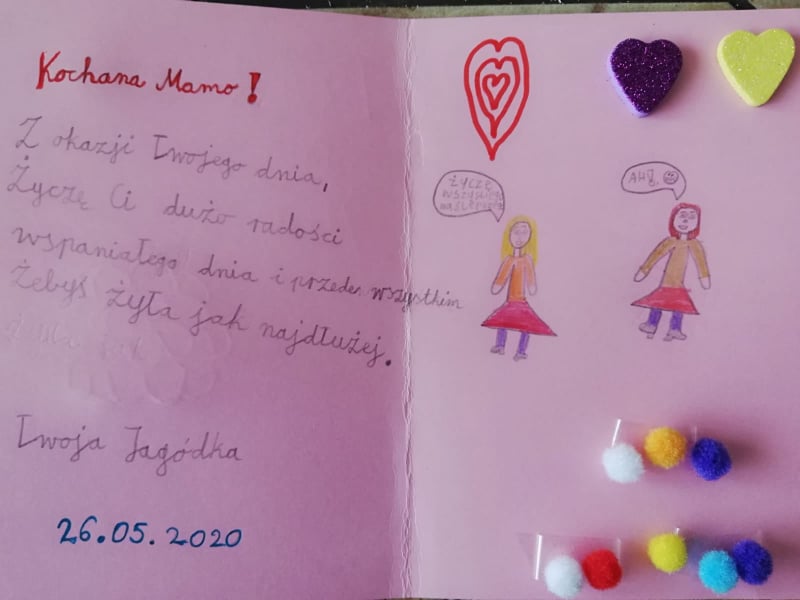 Kochana Mamo!
Z okazji Twojego dnia,
Życzę Ci dużo radości
wspaniałego dnia i przede wszystkim
Żebyś żyła jak najdłużej.
Twoja Jagódka
26.05.2020
ŻYCZĘ
WSZYSKIEGO
NAJLEPSZEGO
AH!